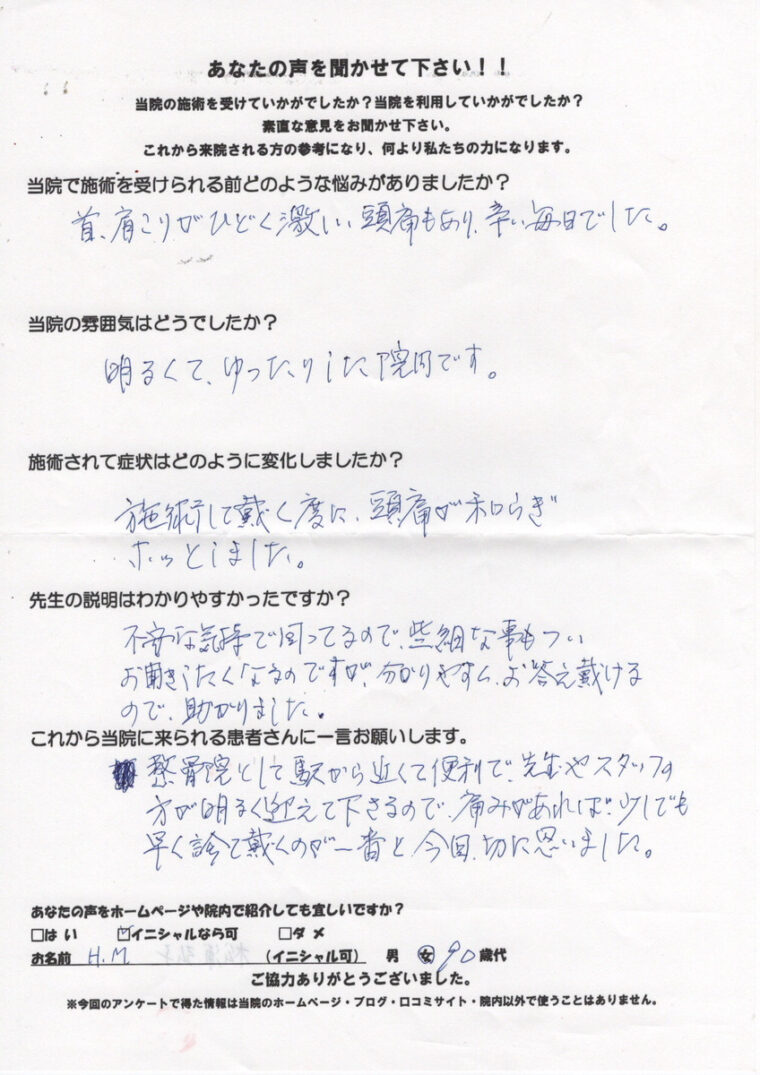 あなたの声を聞かせて下さい！！
当院の施術を受けていかがでしたか？当院を利用していかがでしたか？
素直な意見をお聞かせ下さい。
これから来院される方の参考になり、何より私たちの力になります。
当院で施術を受けられる前どのような悩みがありましたか？
首、肩こりがひどく激しい頭痛もあり、辛い毎日でした。
当院の雰囲気はどうでしたか？
明るくて、ゆったりした院内です。
施術されて症状はどのように変化しましたか？
施術して戴く度に、頭痛が和らぎ
ホッとしました。
先生の説明はわかりやすかったですか？
不安な気持で伺ってるので、些細な事もつい
お聞きしたくなるのですが、分かりやすく、お答え戴ける
ので、助かりました。
これから当院に来られる患者さんに一言お願いします。
整骨院として駅から近くて便利で、先生やスタッフの
方が明るく迎えて下さるので、痛みがあれば、少しでも
早く診て戴くのが一番と、今回、切に思いました。
あなたの声をホームページや院内で紹介しても宜しいですか？
□はい ☑イニシャルなら可 □ダメ
お名前 H.M （イニシャル可） 男 女 90歳代
ご協力ありがとうございました。
※今回のアンケートで得た情報は当院のホームページ・ブログ・口コミサイト・院内以外で使うことはありません。